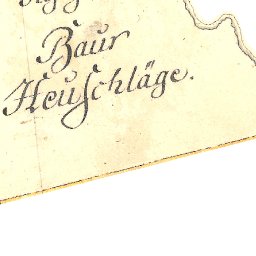 Baur
Heuſchläge.